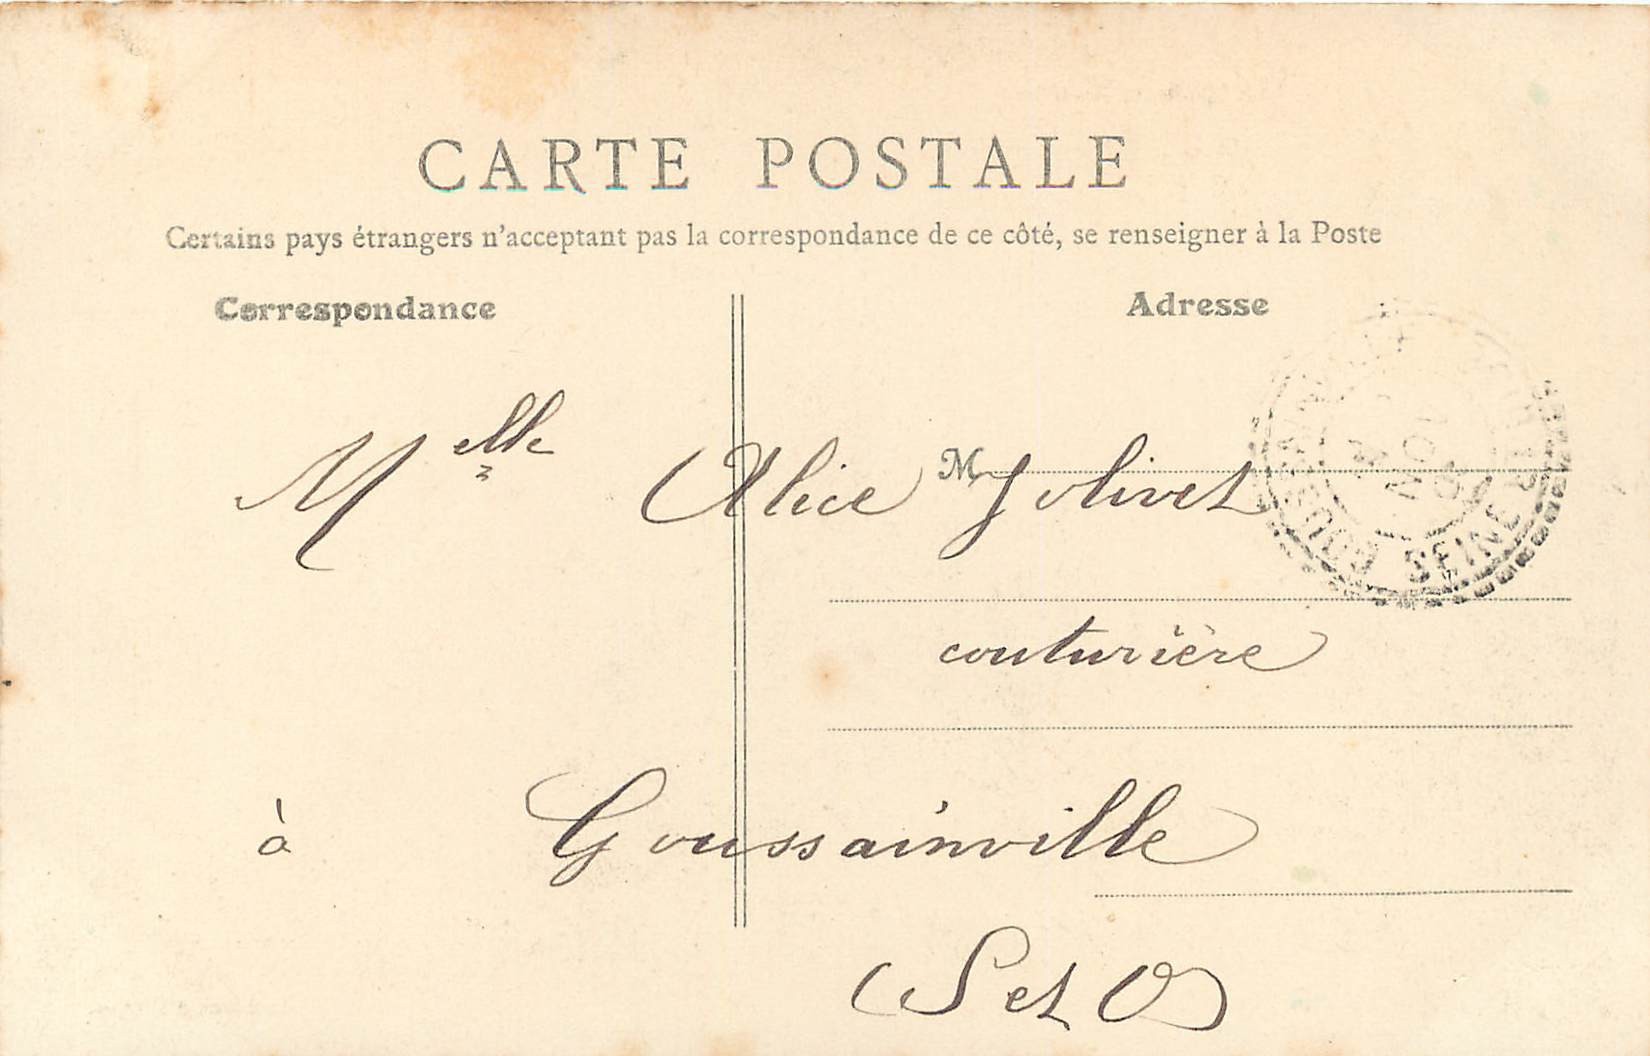 CARTE POSTALE
Certains pays étrangers n'acceptant pas la correspondance de ce côté, se renseigner à la Poste
Correspondance
Adresse
M
Melle Alice Jolivet
couturière
à Goussainville
(S et O)
SEINE